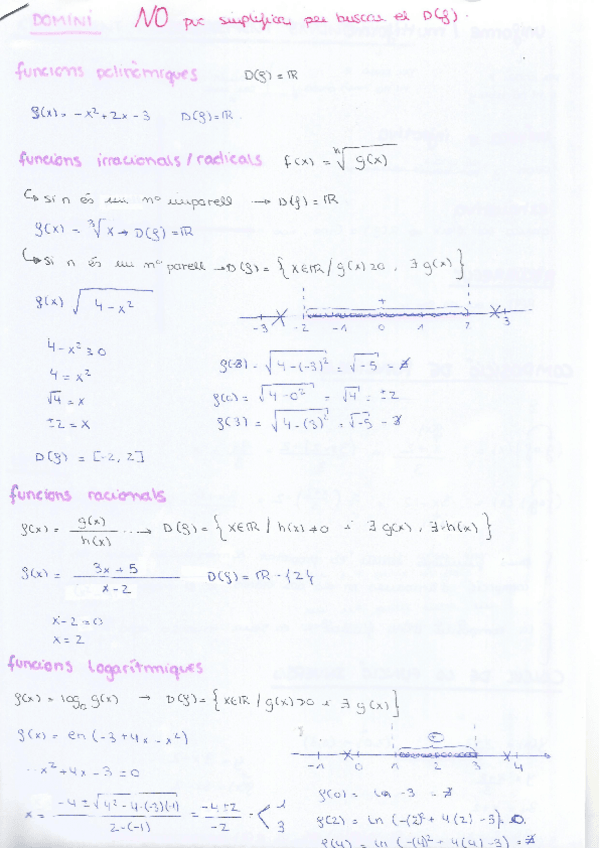 DOMINI NO puc simplificar per buscar el D(f).
funcions polinòmiques D(f) = ℝ
f(x) = -x² + 2x - 3 D(f) = ℝ.
funcions irracionals / radicals f(x) = ⁿ√g(x)
↳ si n és un nº imparell → D(f) = ℝ
f(x) = ³√x → D(f) = ℝ
↳ si n és un nº parell → D(f) = { x∈ℝ / g(x) ≥ 0 , ∃ g(x) }
f(x) √4-x²
-3 -2 -1 0 1 2 3
+
4-x² ≥ 0
4 = x²
√4 = x
±2 = x
f(-3) = √4-(-3)² = √-5 = ∄
f(0) = √4-0² = √4 = ±2
f(3) = √4-(3)² = √-5 = ∄
D(f) = [-2, 2]
funcions racionals
f(x) = g(x)/h(x) → D(f) = { x∈ℝ / h(x) ≠ 0 i ∃ g(x) , ∃ h(x) }
f(x) = 3x + 5 / x - 2 D(f) = ℝ - {2}
x - 2 = 0
x = 2
funcions logarítmiques
f(x) = log g(x) → D(f) = { x∈ℝ / g(x) > 0 i ∃ g(x) }
f(x) = ln (-3 + 4x - x²)
-1 0 1 2 3 4
+
-x² + 4x - 3 = 0
x = -4 ± √4² - 4·(-3)(-1) / 2·(-1) = -4 ± 2 / -2 = < 1 3
f(0) = ln -3 = ∄
f(2) = ln (-(2)² + 4(2) - 3) = 0.
f(4) = ln (-(4)² + 4(4) - 3) = ∄